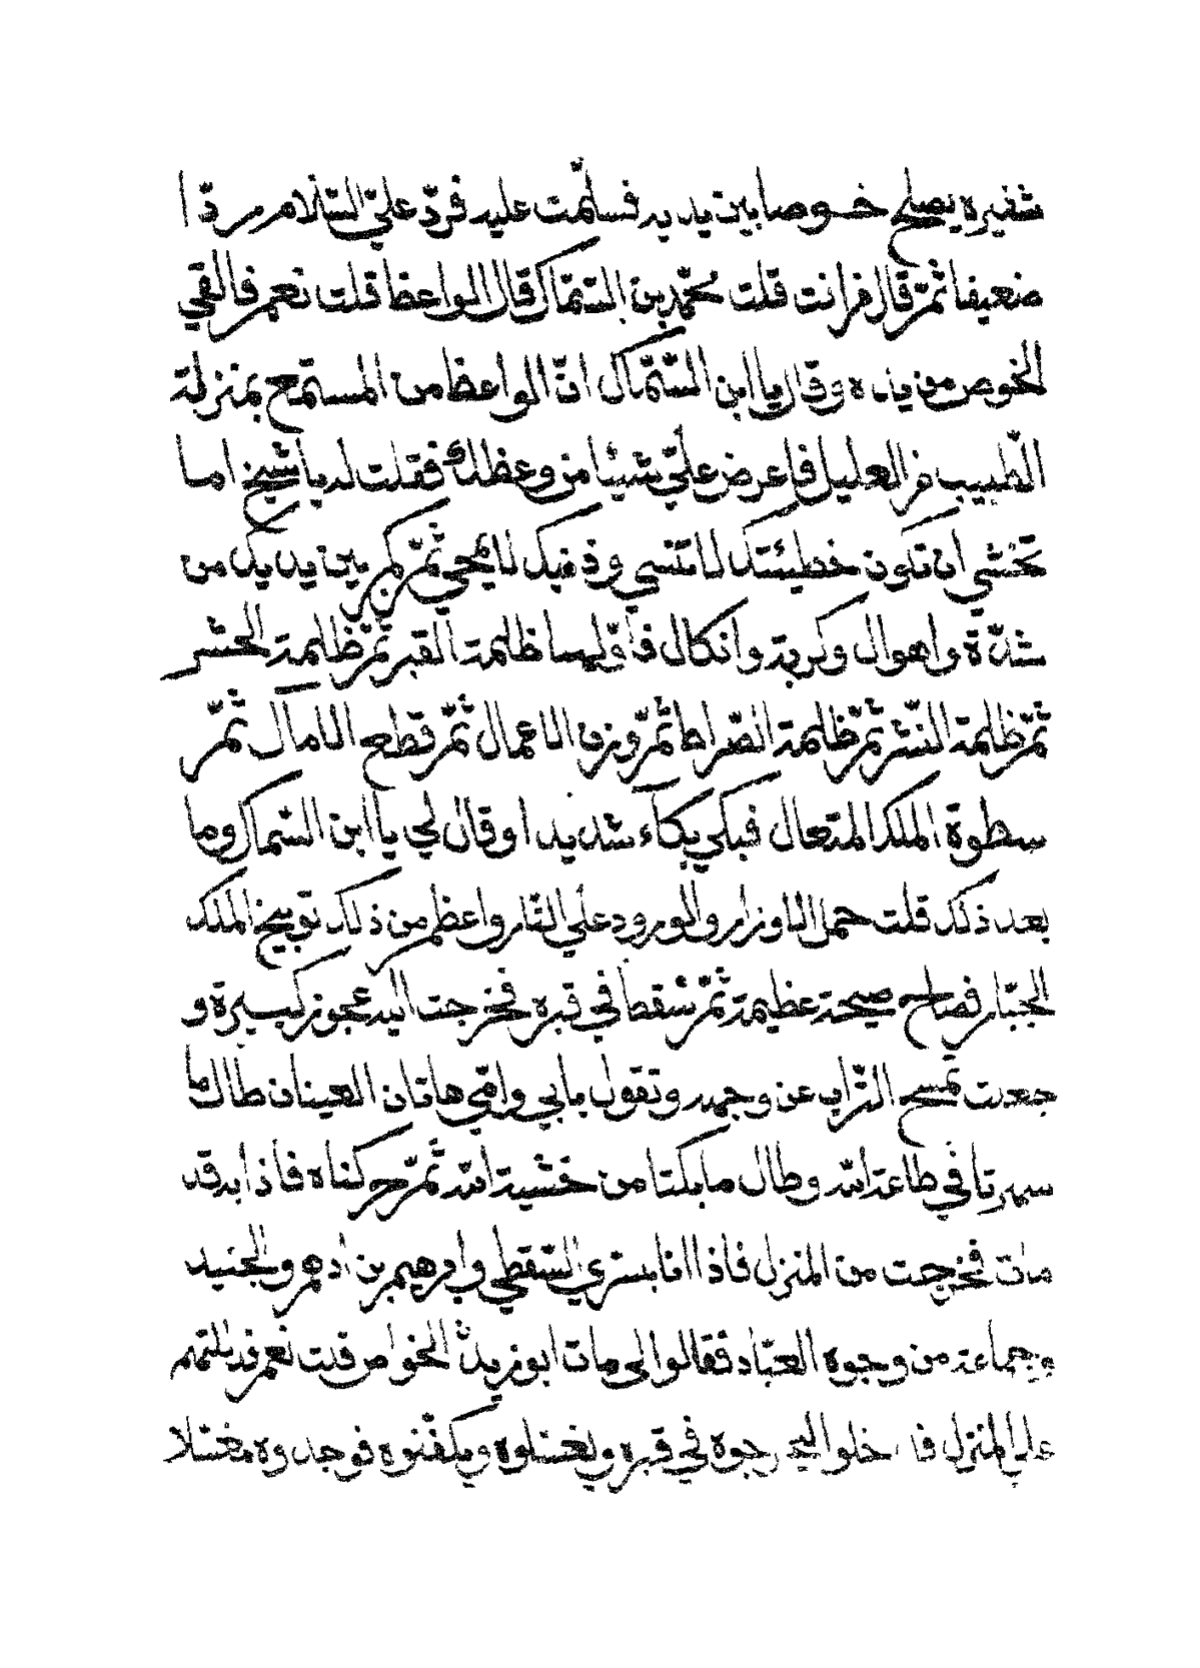 شفيره يصلح خوصا بين يديه فسلّمت عليه فردّ عليّ السّلام ردّا
ضعيفا ثمّ قال من انت قلت محمّد بن السّمّاك قال الواعظ قلت نعم فالقي
الخوص من يده وقال يا ابن السّمّاك انّ الواعظ من المستمع بمنزلة
الطّبيب من العليل فاعرض عليّ شيئا من وعظك فقلت له يا شيخ اما
تخشي ان تكون خطيئتك لا تنسي وذنبك لا يمحي ثمّ كم بين يديك من
شدّة واهوال وكربة وانكال فاوّلها ظلمة القبر ثمّ ظلمة الحشر
ثمّ ظلمة النّشر ثمّ ظلمة الصّراط ثمّ وزن الاعمال ثمّ قطع الامال ثمّ
سطوة الملك المتعال فبكي بكآء شديدا وقال لي يا ابن السّماك وما
بعد ذلك قلت حمل الاوزار والورود علي النّار واعظم من ذلك توبيخ الملك
الجبّار فصاح صيحة عظيمة ثمّ سقط في قبره فخرجت اليه عجوز كبيرة و
جعلت تمسح التّراب عن وجهه وتقول بابي وامّي هاتان العينان طال ما
سهرتا في طاعة الله وطال ما بكتا من خشية الله ثمّ حركناه فاذا به قد
مات فخرجت من المنزل فاذا انا بسري السّقطي وابرهيم بن ادهم والجنيد
وجماعة من وجوه العبّاد فقالوا لي مات ابو يزيد الخواص قلت نعم فدللتهم
علي المنزل فدخلوا ليخرجوه في قبره ويغسلوه ويكفّنوه فوجدوه مغسّلا